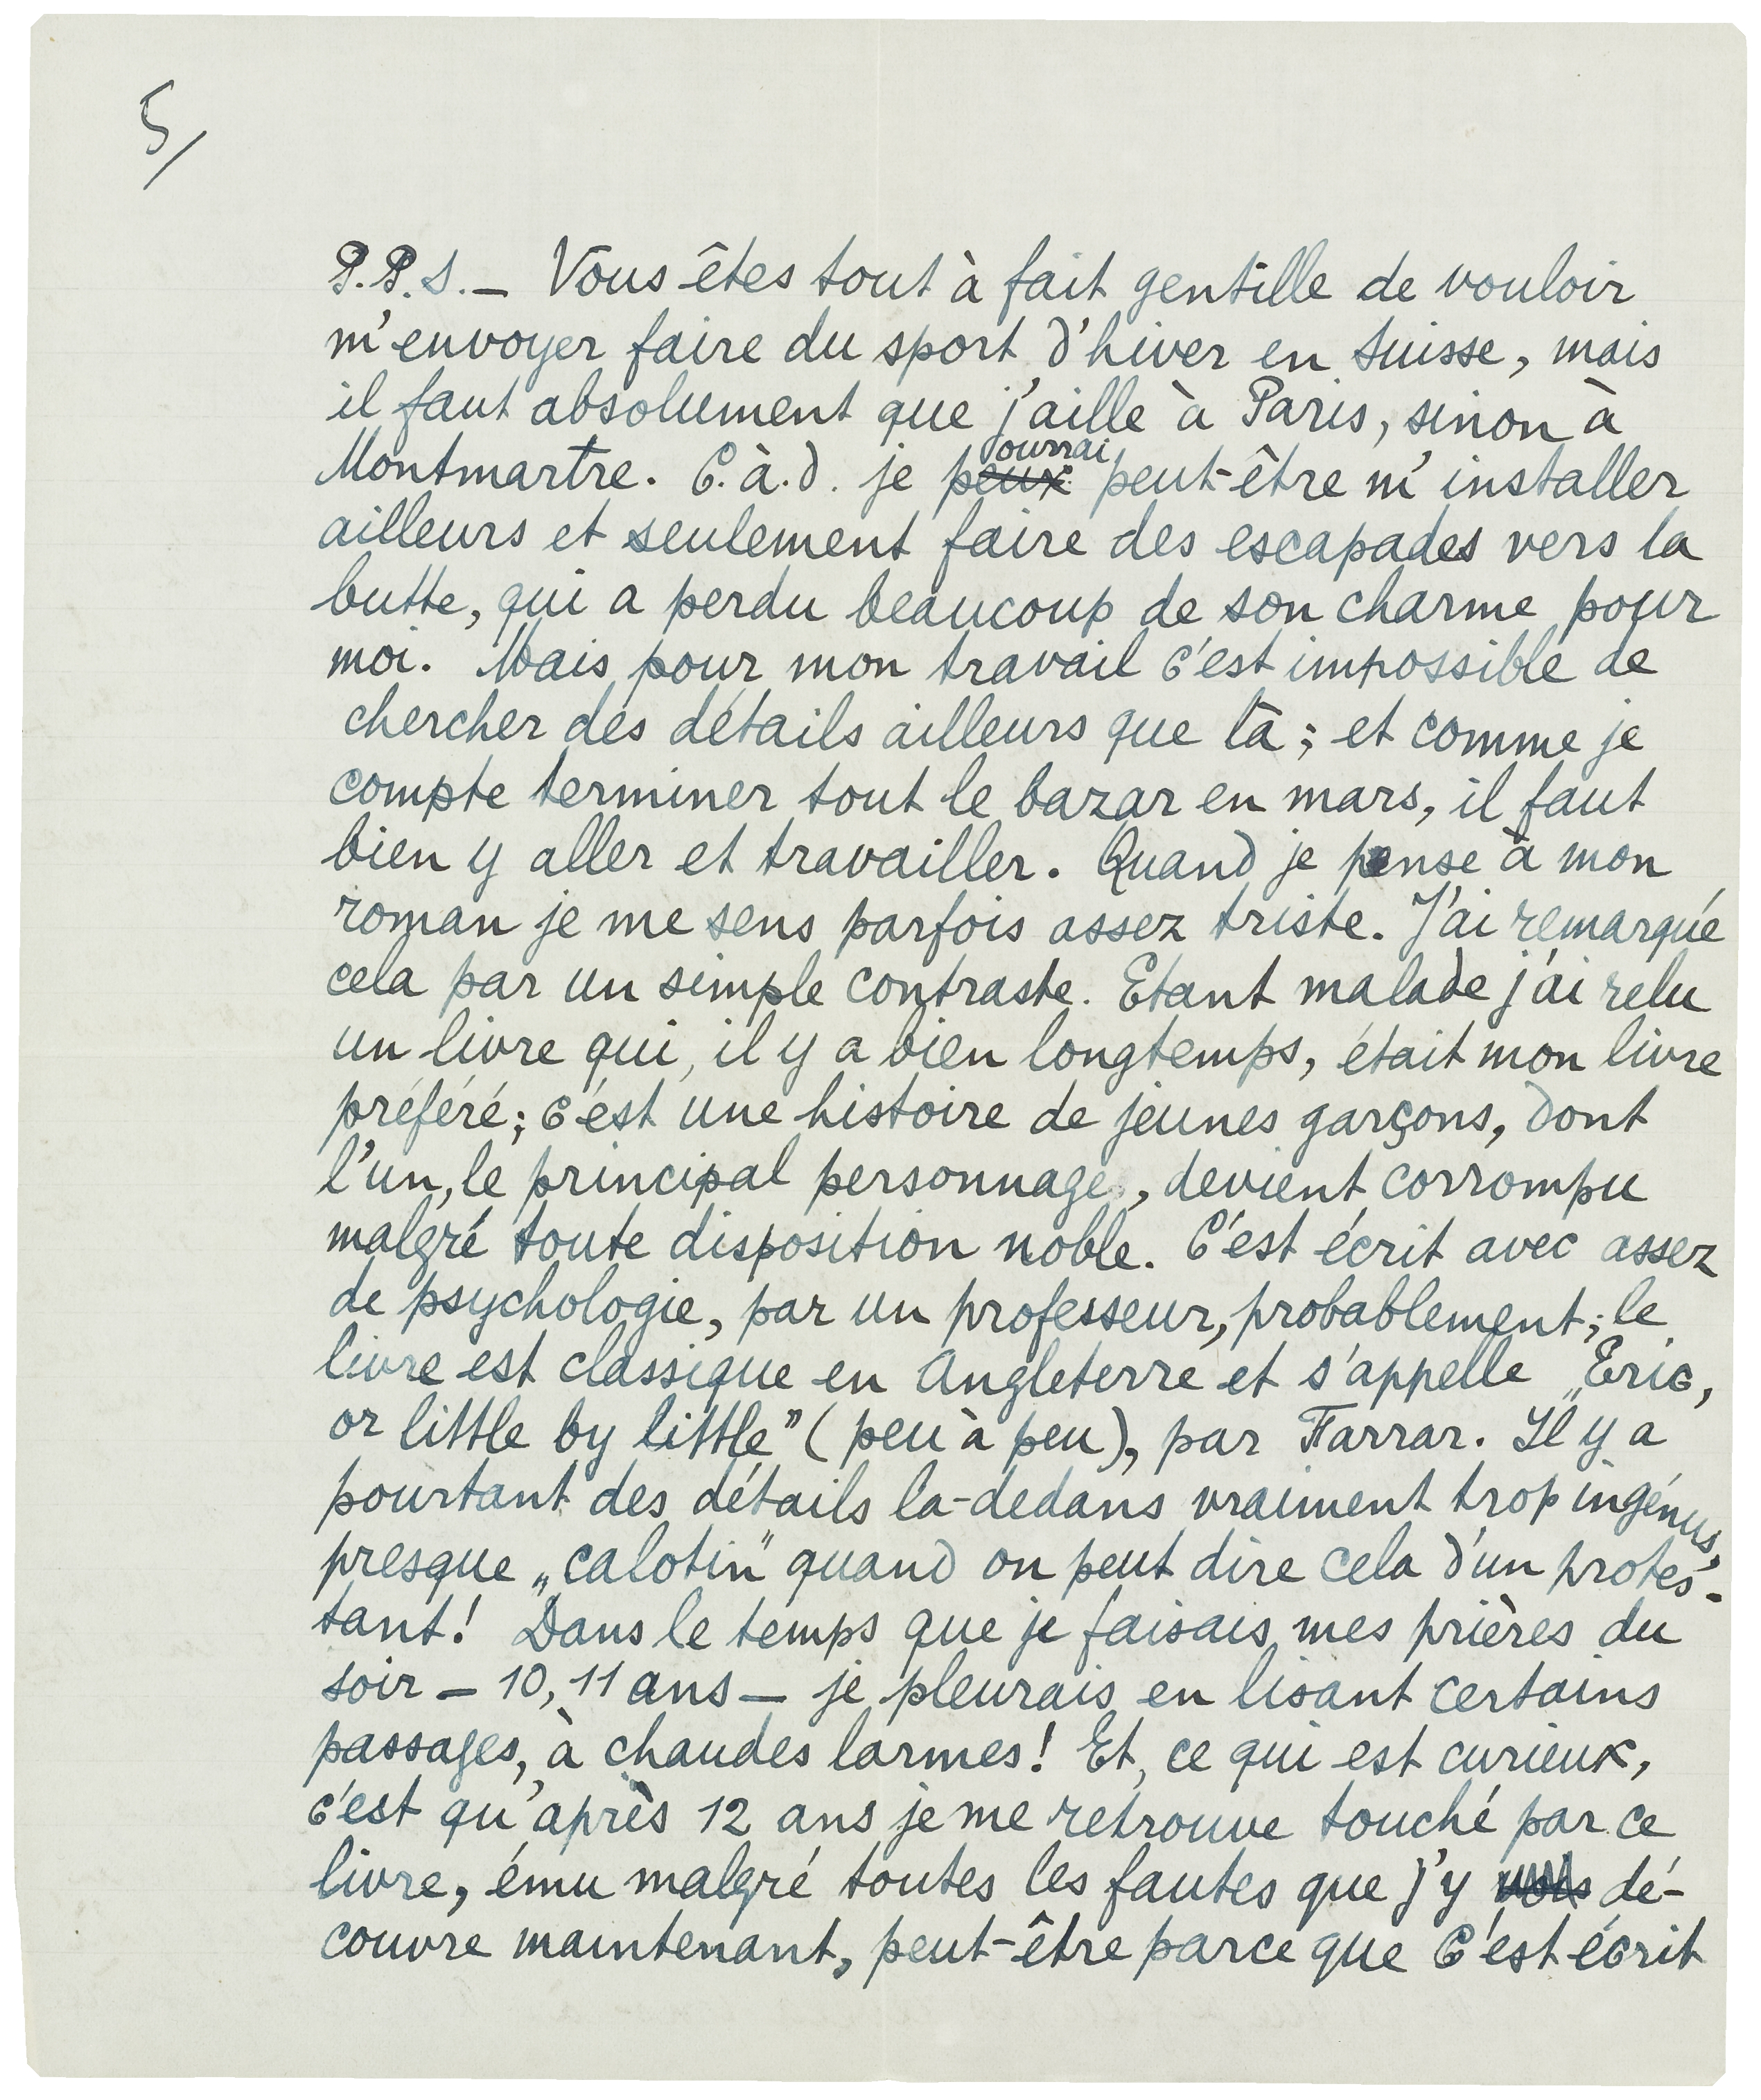 5/
P.P.S. — Vous êtes tout à fait gentille de vouloir
m'envoyer faire du sport d'hiver en Suisse, mais
il faut absolument que j'aille à Paris, sinon à
Montmartre. C.à.d. je peux pourrai peut-être m'installer
ailleurs et seulement faire des escapades vers la
butte, qui a perdu beaucoup de son charme pour
moi. Mais pour mon travail c'est impossible de
chercher des détails ailleurs que là; et comme je
compte terminer tout le bazar en mars, il faut
bien y aller et travailler. Quand je pense à mon
roman je me sens parfois assez triste. J'ai remarqué
cela par un simple contraste. Etant malade j'ai relu
un livre qui, il y a bien longtemps, était mon livre
préféré; c'est une histoire de jeunes garçons, dont
l'un, le principal personnage, devient corrompu
malgré toute disposition noble. C'est écrit avec assez
de psychologie, par un professeur, probablement; le
livre est classique en Angleterre et s'appelle „Eric,
or little by little” (peu à peu), par Farrar. Il y a
pourtant des détails la-dedans vraiment trop ingénus,
presque „calotin” quand on peut dire cela d'un protes-
tant! Dans le temps que je faisais mes prières du
soir — 10, 11 ans — je pleurais en lisant certains
passages, à chaudes larmes! Et, ce qui est curieux,
c'est qu'après 12 ans je me retrouve touché par ce
livre, ému malgré toutes les fautes que j'y vois dé-
couvre maintenant, peut-être parce que c'est écrit